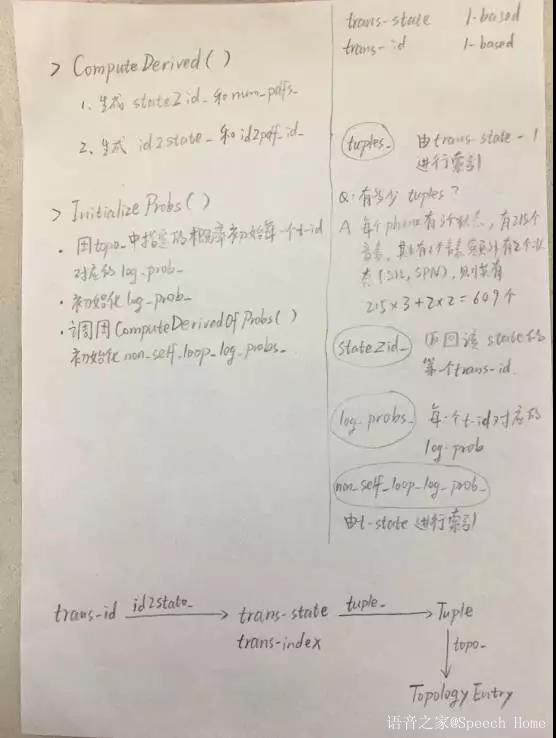 > ComputeDerived()
1. 生成 state2id_ 和 num_pdfs_
2. 生成 id2state_ 和 id2pdf_id_
> InitializeProbs()
· 用topo_中指定的概率初始每一个t-id
对应的 log_prob_
· 初始化 log_prob_
· 调用 ComputeDerivedOfProbs()
初始化 non_self_loop_log_probs_
trans-state 1-based
trans-id 1-based
tuples_ 由trans-state-1
进行索引
Q: 有多少 tuples?
A 每个phone有3个状态, 有215个
音素, 其中有2个音素额外有2个状
态(SIL, SPN), 则共有
215×3+2×2=609个
state2id_ 返回该state的
第一个trans-id.
log-probs_ 每一个t-id对应的
log-prob
non_self_loop_log_prob_
由t-state进行索引
trans-id id2state_ trans-state tuple_ Tuple
trans-index topo_
Topology Entry
语音之家@Speech Home